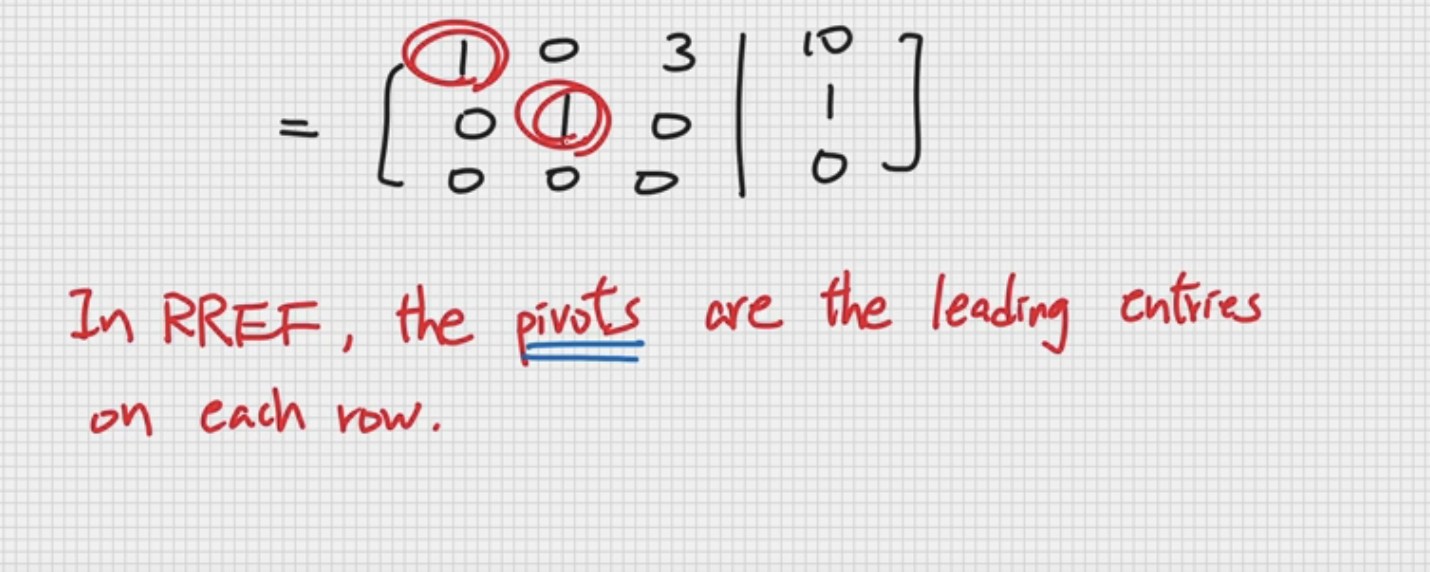 1 0 3 | 10
= 0 1 0 | 1
0 0 0 | 0
In RREF, the pivots are the leading entries
on each row.